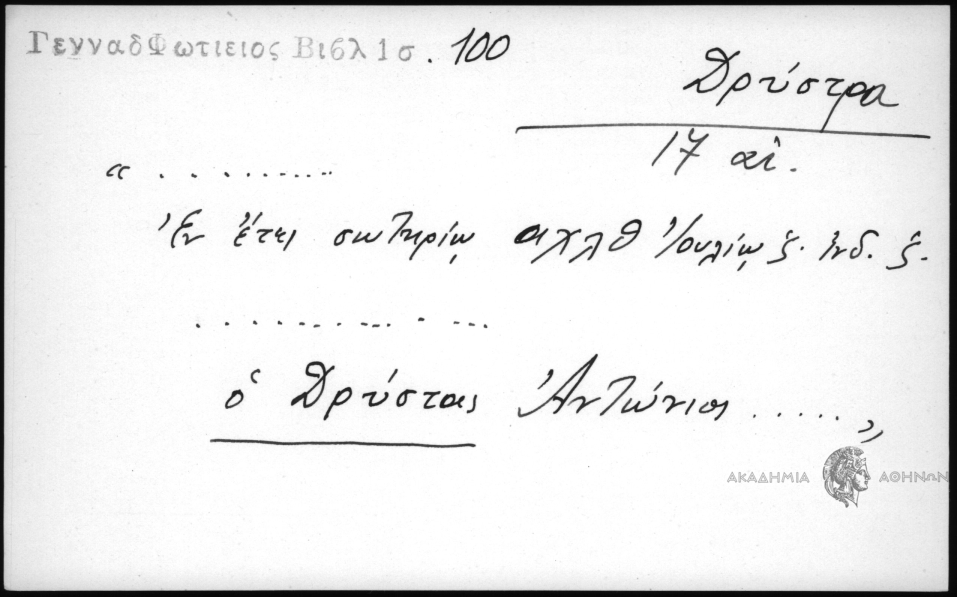 ΓενναδΦωτιειος Βιβλ 1σ. 100
Δρύστρα
17 αἰ.
« . . . . . . . . . .
Ἐν ἔτει σωτηρίῳ αχλθ Ἰουλίῳ ζ. ἰνδ. ζ.
. . . . . . . . . . . . . .
ὁ Δρύστας Ἀντώνιος . . . . . »
ΑΚΑΔΗΜΙΑ ΑΘΗΝΩΝ